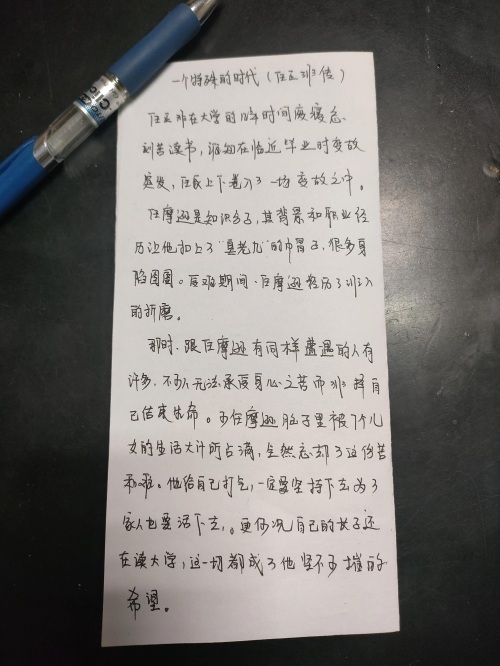 一个特殊的时代（任正非传）
任正非在大学的几年时间废寝忘
刻苦读书，谁知在临近毕业时变故
突发，任家上下卷入了一场变故之中。
任摩逊是知识分子，其背景和职业经
历让他扣上了"臭老九"的帽子，很多身
陷囹圄。厄难期间，任摩逊经历了非人
的折磨。
那时，跟任摩逊有同样遭遇的人有
许多，不少人无法承受身心之苦而 择自
己结束生命。可任摩逊脑子里被7个儿
女的生活大计所占满，全然忘却了这份苦
和难。他给自己打气，一定要坚持下去为了
家人也要活下去，。更何况自己的长子还
在读大学，这一切都成了他坚不可摧的
希望。